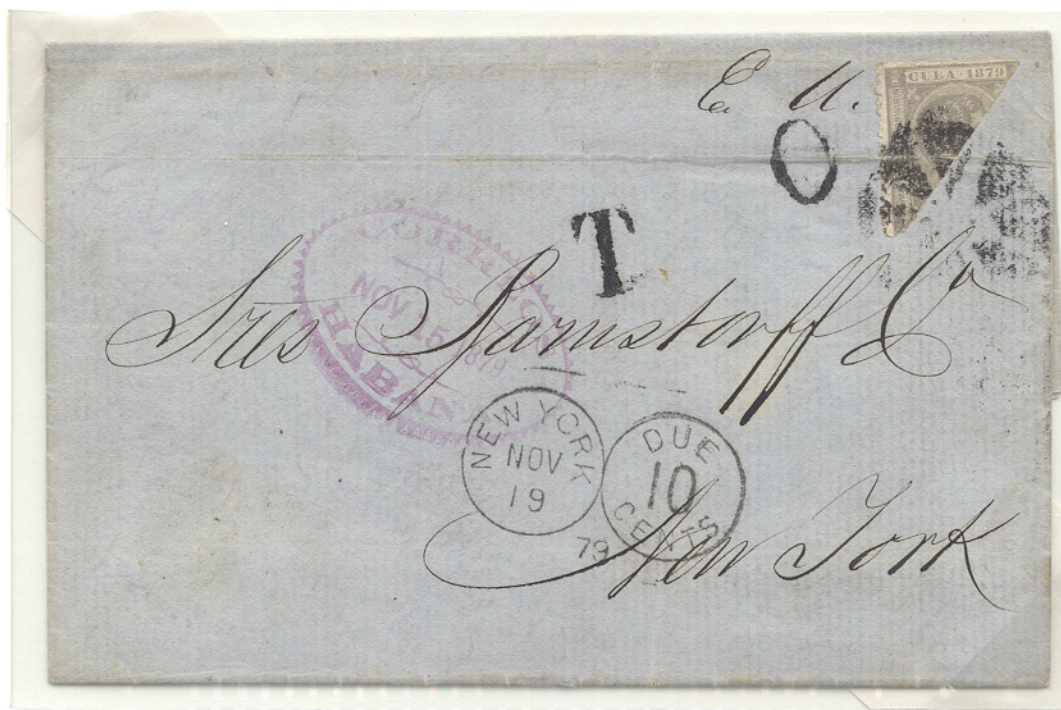 E. U.
CUBA 1879
O
T
CORREOS
NOV 15 1879
HABANA
Sres Garnstorff & Co
NEW YORK
NOV
19
79
DUE
10
CENTS
New York